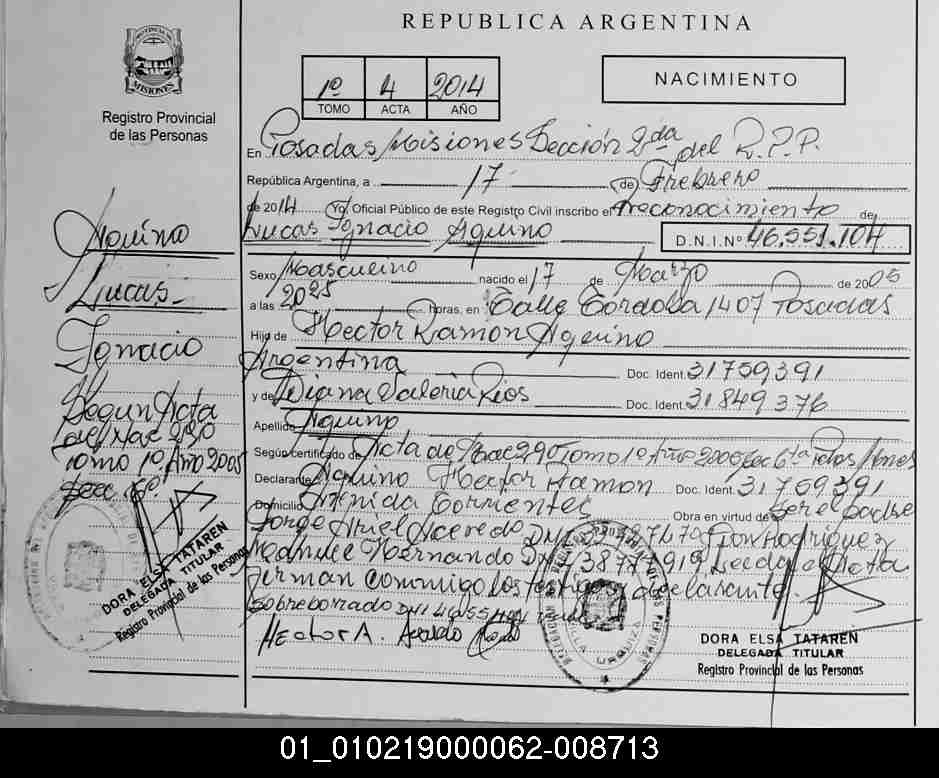 REPUBLICA ARGENTINA
PROVINCIA DE
MISIONES
Registro Provincial
de las Personas
1º 4 2014
TOMO ACTA AÑO
NACIMIENTO
En Posadas/Misiones Sección 2da del R.P.P.
República Argentina, a 17 de Frebrero
de 2014 Yo Oficial Público de este Registro Civil inscribo el Rreconocimiento de
Lucas Ignacio Aquino D.N.I.Nº 46.551.104
Sexo Masculino nacido el 17 de Marzo de 2005
a las 2025 horas, en Calle Córdoba 1407 Posadas
Hijo de Hector Ramon Aquino
Argentina Doc. Ident. 31759391
y de Diana Valeria Rios Doc. Ident. 31849376
Apellido Aquino
Según certificado de Acta de Nac 290 Tomo 1º Año 2005 Sec 6ta
Declarante Aquino Hector Ramon Doc. Ident. 31759391
Domicilio Avenida Corrientes Obra en virtud de Ser el Padre
Jorge Ariel Acevedo Rodriguez
Hernando Leida el Acta
firman conmigo los testigos y declarante.
Sobreborrado DNI
Hector A. Acevedo
DORA ELSA TATAREN
DELEGADA TITULAR
Registro Provincial de las Personas
Aquino
Lucas
Ignacio
Segun Acta
del Nac 290
Tomo 1º Año 2005
Sec. 6ª
DORA ELSA TATAREN
DELEGADA TITULAR
Registro Provincial de las Personas
VILLA URQUIZA
01_010219000062-008713